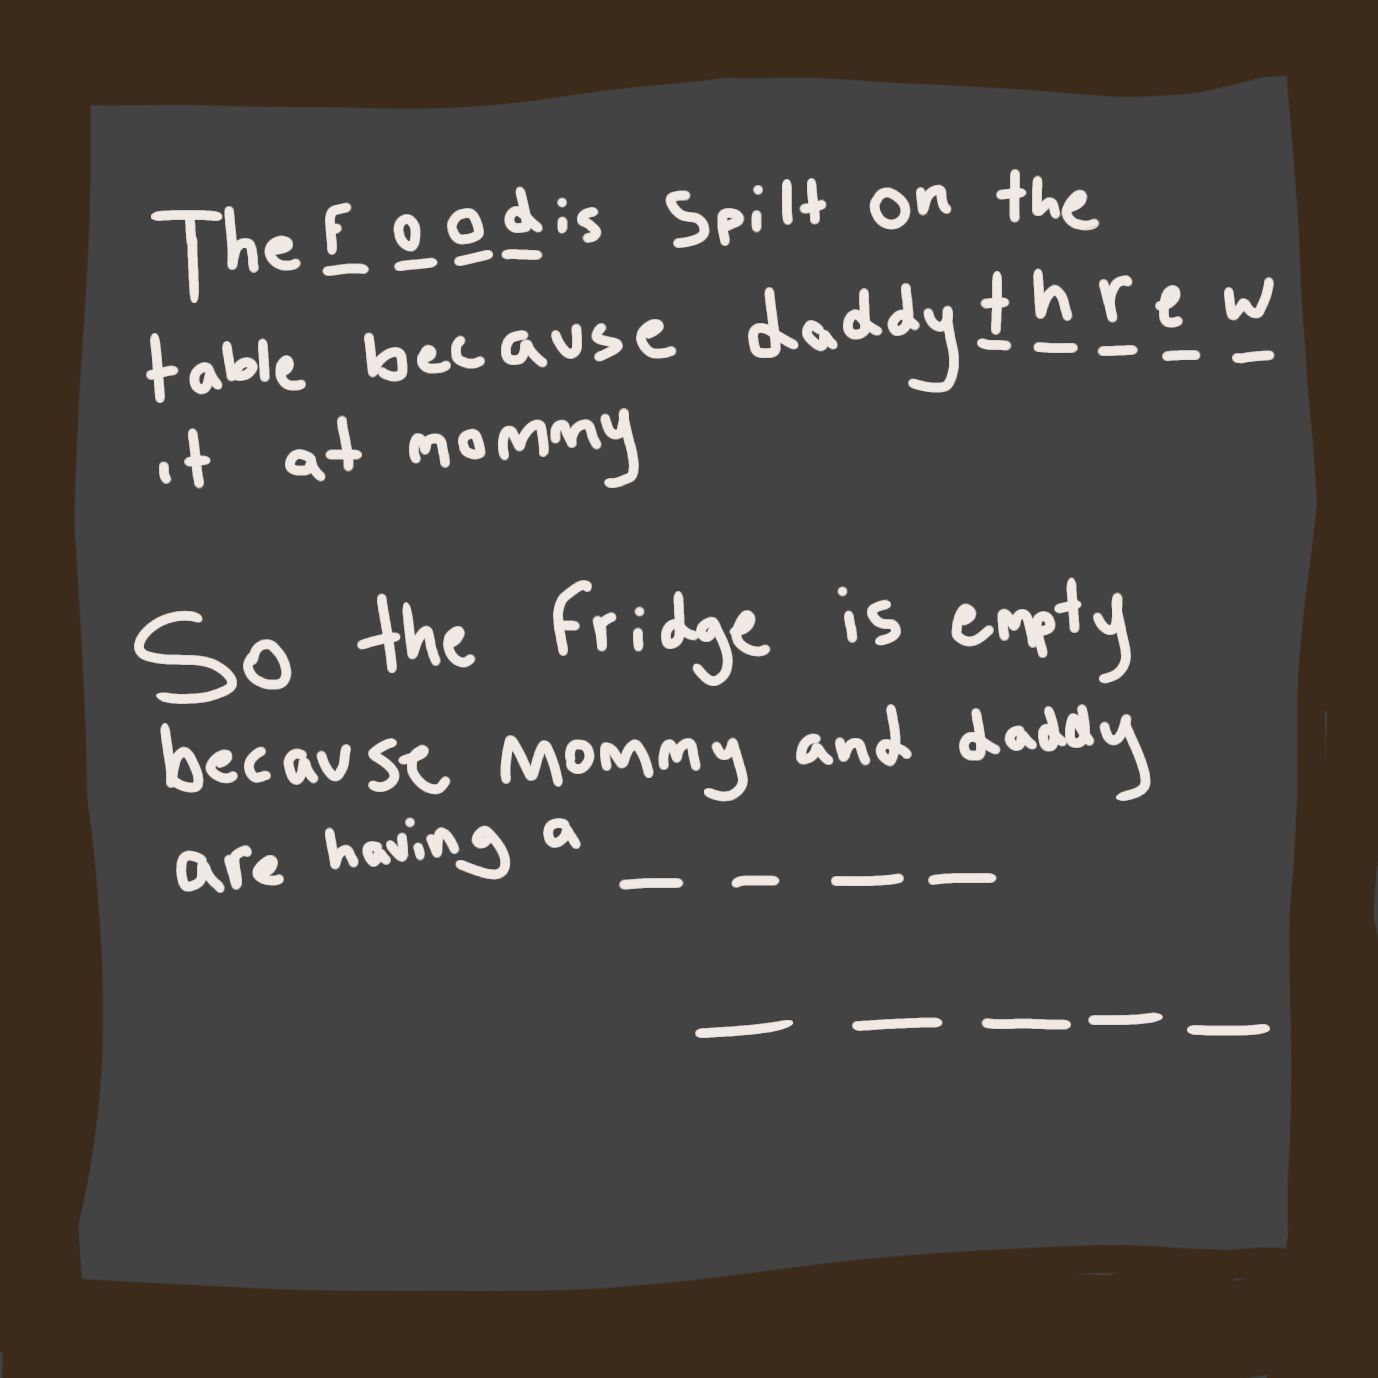 The food is Spilt on the
table because daddy threw
it at mommy
So the fridge is empty
because Mommy and daddy
are having a _ _ _ _
_ _ _ _ _